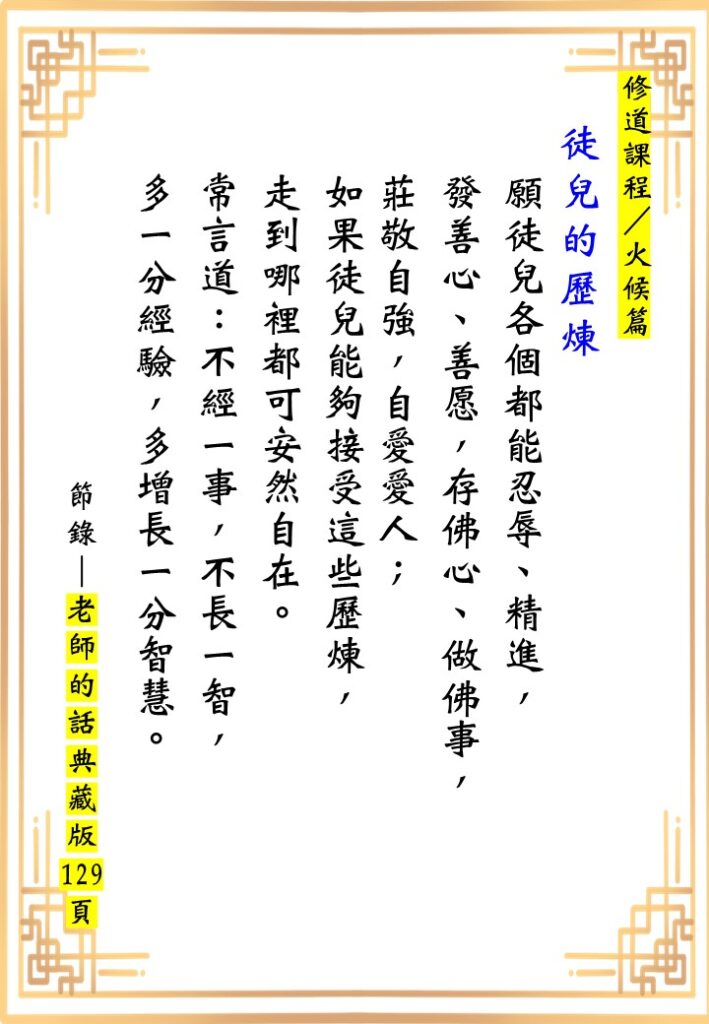 修道課程／火候篇
徒兒的歷煉
願徒兒各個都能忍辱、精進，
發善心、善愿，存佛心、做佛事，
莊敬自強，自愛愛人；
如果徒兒能夠接受這些歷煉，
走到哪裡都可安然自在。
常言道：不經一事，不長一智，
多一分經驗，多增長一分智慧。
節錄—老師的話典藏版129頁